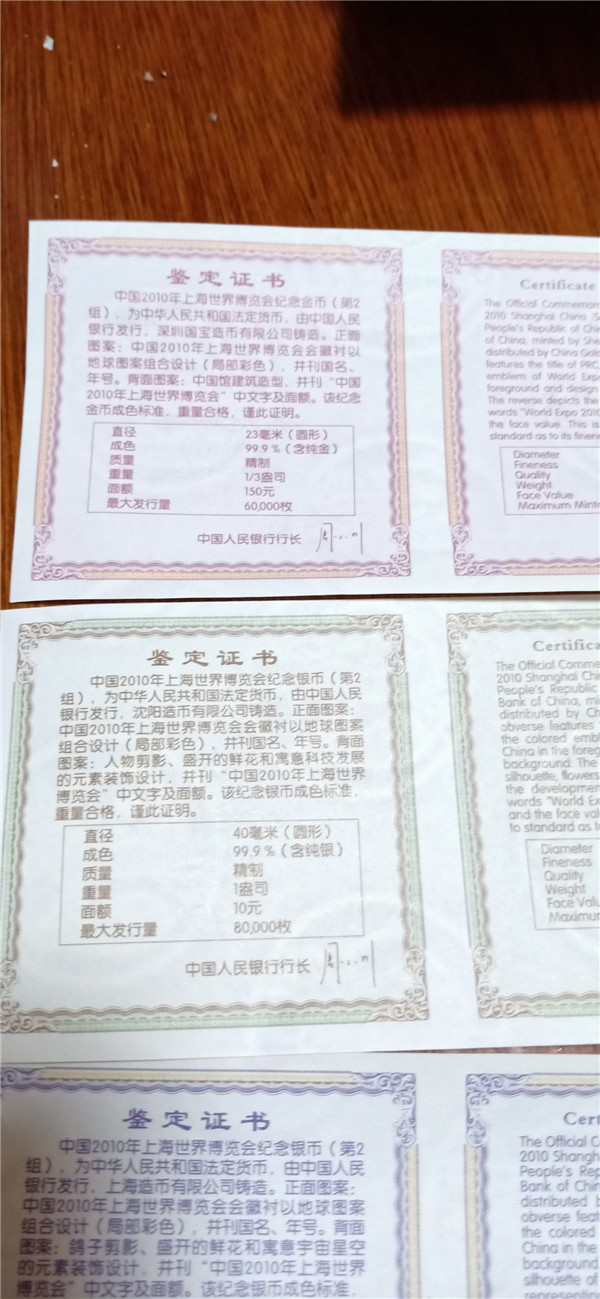 鉴定证书
中国2010年上海世界博览会纪念金币（第2
组），为中华人民共和国法定货币，由中国人民
银行发行，深圳国宝造币有限公司铸造。正面
图案：中国2010年上海世界博览会会徽衬以
地球图案组合设计（局部彩色），并刊国名、
年号。背面图案：中国馆建筑造型，并刊“中国
2010年上海世界博览会”中文字及面额。该纪念
金币成色标准，重量合格，谨此证明。
直径 23毫米（圆形）
成色 99.9％（含纯金）
质量 精制
重量 1/3盎司
面额 150元
最大发行量 60,000枚
中国人民银行行长
Certificate
The Official Commemor
2010 Shanghai China (S
People's Republic of Chin
of China, minted by She
distributed by China Gold
features the title of PRC,
emblem of World Expo
foreground and design
The reverse depicts the
words "World Expo 2010
the face value. This is
standard as to its finen
Diameter
Fineness
Quality
Weight
Face Value
Maximum Minta
鉴定证书
中国2010年上海世界博览会纪念银币（第2
组），为中华人民共和国法定货币，由中国人民
银行发行，沈阳造币有限公司铸造。正面图案：
中国2010年上海世界博览会会徽衬以地球图案
组合设计（局部彩色），并刊国名、年号。背面
图案：人物剪影、盛开的鲜花和寓意科技发展
的元素装饰设计，并刊“中国2010年上海世界
博览会”中文字及面额。该纪念银币成色标准，
重量合格，谨此证明。
直径 40毫米（圆形）
成色 99.9％（含纯银）
质量 精制
重量 1盎司
面额 10元
最大发行量 80,000枚
中国人民银行行长
Certifica
The Official Comme
2010 Shanghai Chi
People's Republic
Bank of China, mi
distributed by Ch
obverse features
the colored emb
China in the foreg
background. The
silhouette, flowers
the development
words "World Ex
and the face val
to standard as t
Diameter
Fineness
Quality
Weight
Face Valu
Maximum
鉴定证书
中国2010年上海世界博览会纪念银币（第2
组），为中华人民共和国法定货币，由中国人民
银行发行，上海造币有限公司铸造。正面图案：
中国2010年上海世界博览会会徽衬以地球图案
组合设计（局部彩色），并刊国名、年号。背面
图案：鸽子剪影、盛开的鲜花和寓意宇宙星空
的元素装饰设计，并刊“中国2010年上海世界
博览会”中文字及面额。该纪念银币成色标准，
Cert
The Official C
2010 Shangh
People's Rep
Bank of Chin
distributed b
obverse feat
the colored
China in the
background
silhouette of
representing